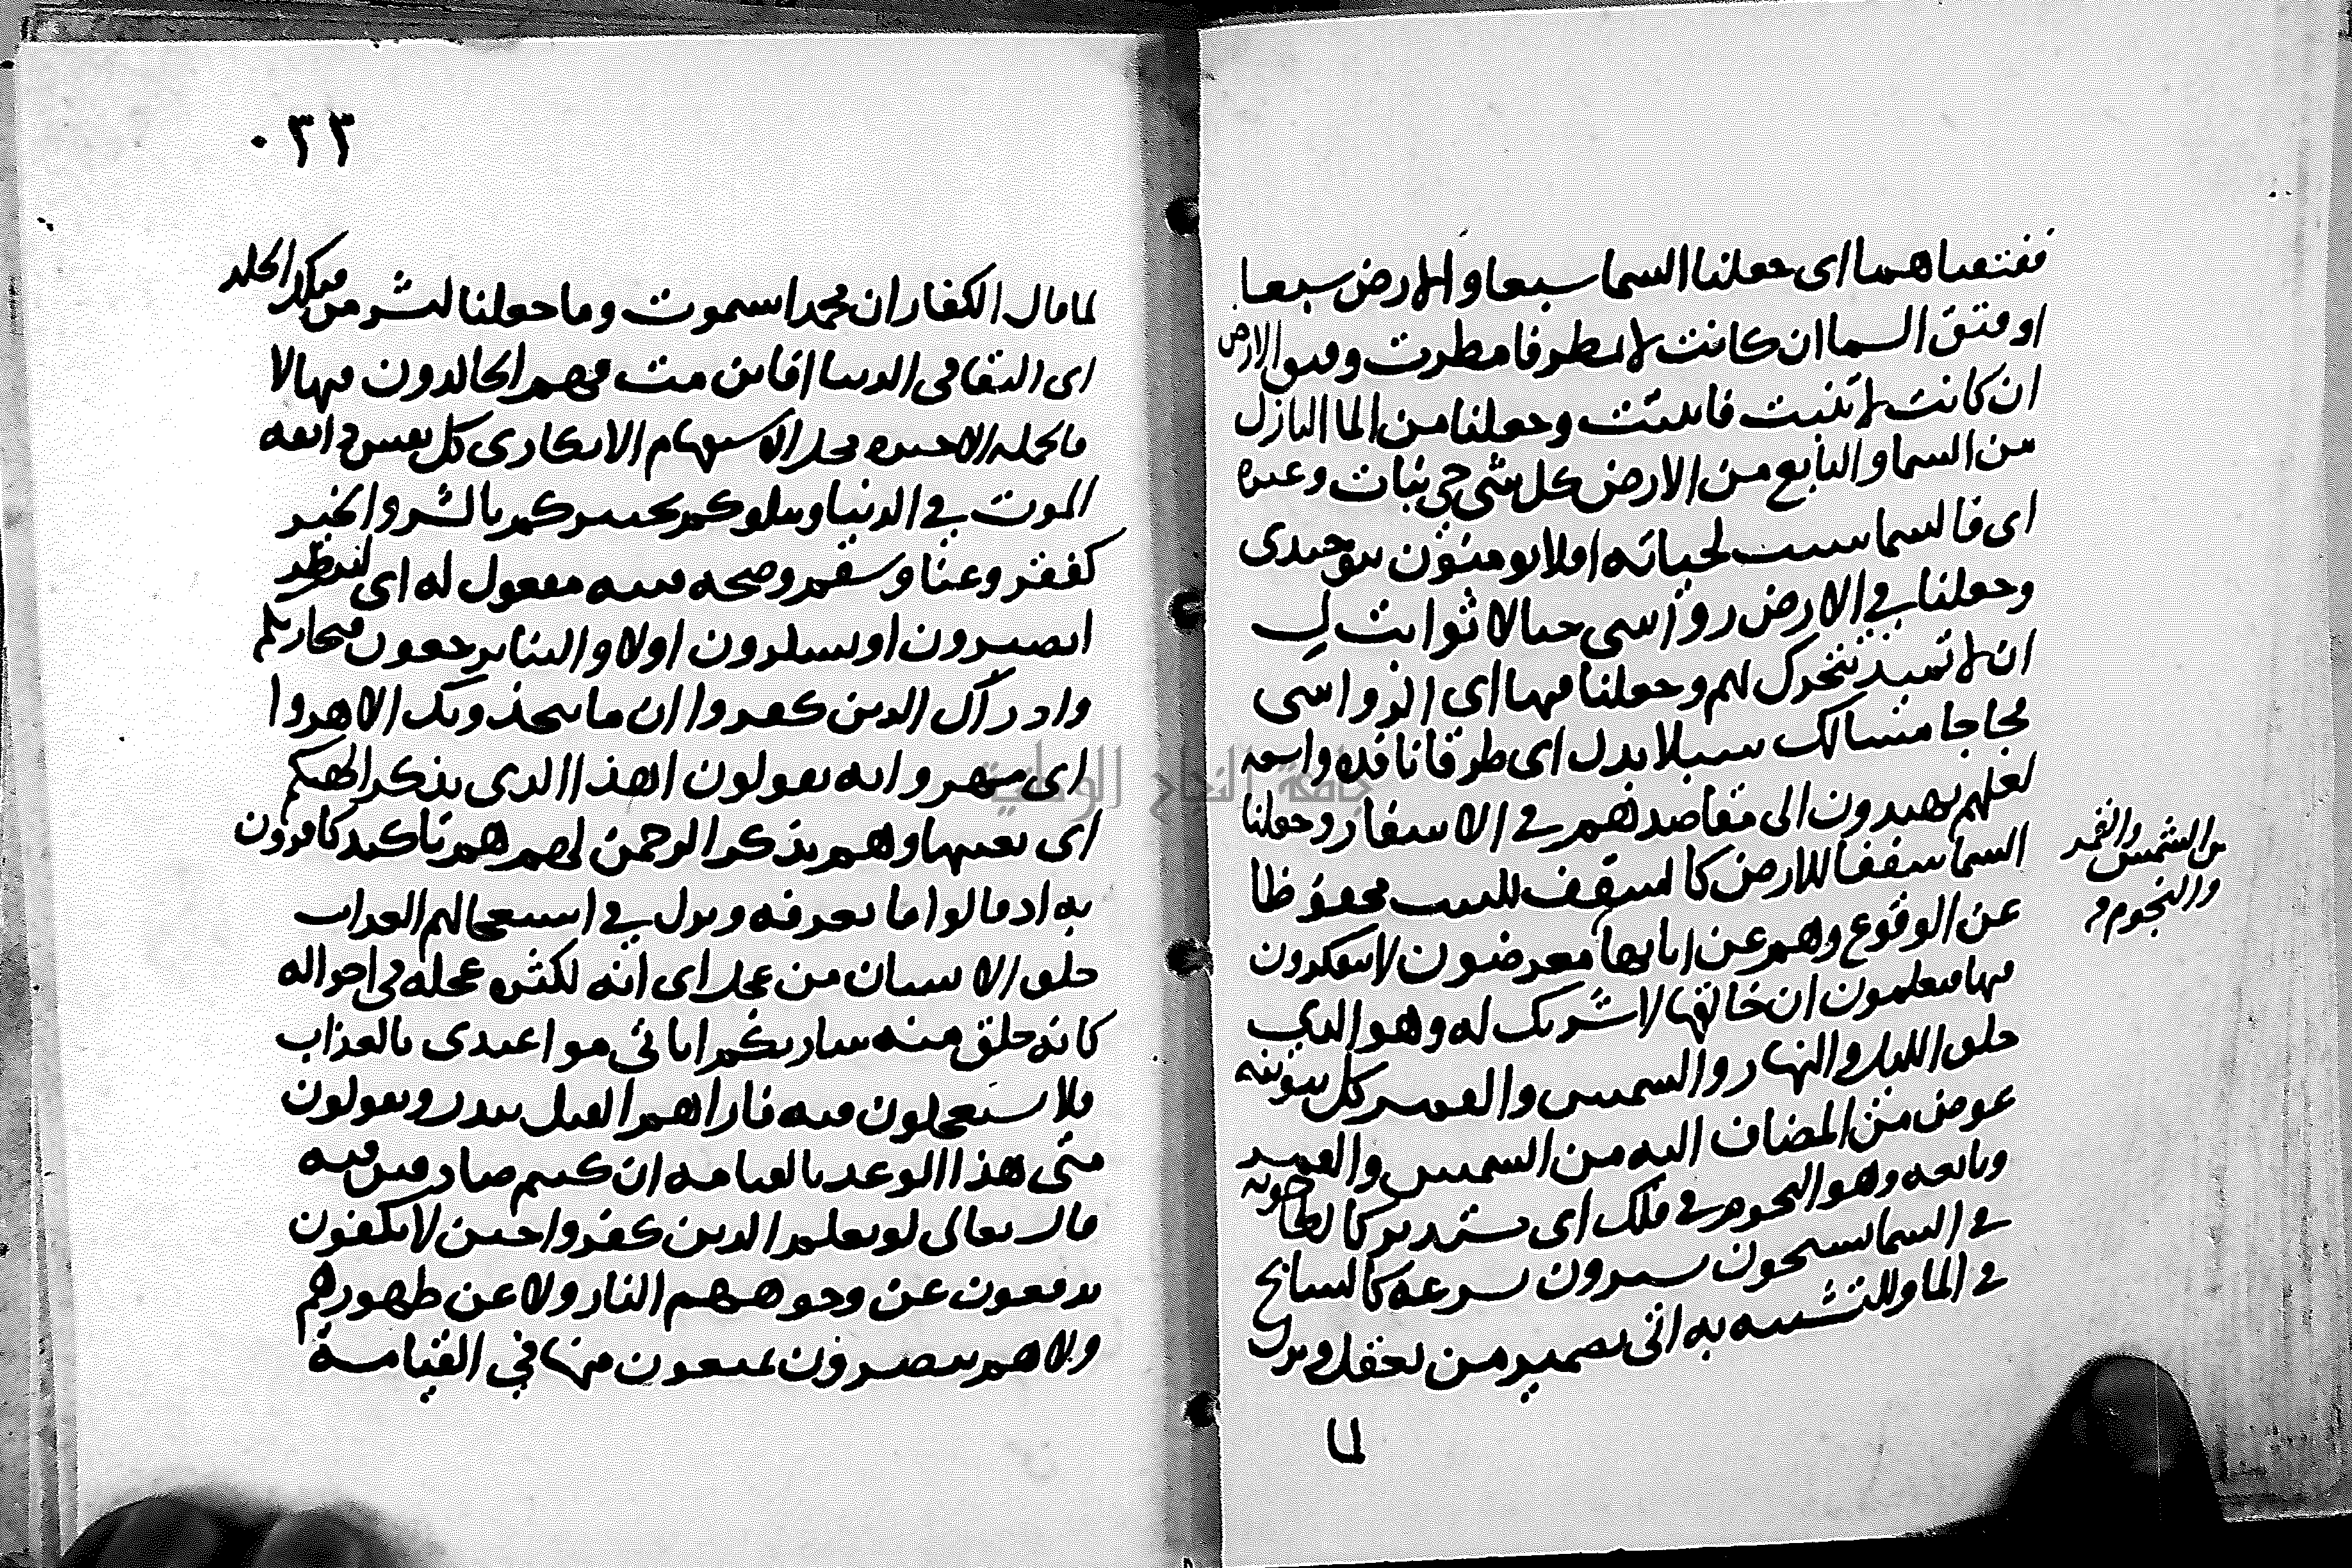 ففتقناهما اى جعلنا السما سبعا والارض سبعا
او فتق السما ان كانت لا تمطر فامطرت وفتق الارض
ان كانت لا تنبت فانبتت وجعلنا من الما النازل
من السما والنابع من الارض كل شى حي نبات وغيره
اى فالما سبب لحياته افلا يومنون بتوحيدى
وجعلنا في الارض رواسى جبالا ثوابت لـ
ان لا تميد تتحرك بهم وجعلنا فيها اى الرواسى
فجاجا مسالك سبلا بدل اى طرقا نافذه واسعه
لعلهم يهتدون الى مقاصدهم في الاسفار وجعلنا
السما سقفا للارض كالسقف للبيت محفوظا
عن الوقوع وهم عن اياتها معرضون لا يتفكرون
من الشمس والقمر
والنجوم
فيها فيعلمون ان خالقها لا شريك له وهو الذي
خلق الليل والنهار والشمس والقمر كل تنوينه
عوض من المضاف اليه من الشمس والقمر
وتابعه وهو النجوم في فلك اى مستدير كالطاحونه
في السما يسبحون يسيرون بسرعه كالسابح
في الما وللتشبيه به اتى بضمير من يعقل ونزل
لما
٠٣٣
لما قال الكفار ان محمدا سيموت وما جعلنا لبشر من قبلك الخلد
اى البقا في الدنيا افاين مت فهم الخالدون فيها لا
فالجمله الاخيره محل الاستفهام الانكارى كل نفس ذائقه
الموت في الدنيا ونبلوكم نختبركم بالشر والخير
كفقر وغنا وسقم وصحه فتنه مفعول له اى لننظر
اتصبرون وتشكرون اولا والينا ترجعون فنجازيكم
واذا رآك الذين كفروا ان ما يتخذونك الا هزوا
اى مهزوا به يقولون اهذا الذى يذكر الهتكم
اى يعيبها وهم بذكر الرحمن لهم هم تاكيد كافرون
به اذ قالوا ما نعرفه ونزل في استعجالهم العذاب
خلق الانسان من عجل اى انه لكثره عجله في احواله
كانه خلق منه ساريكم اياتى مواعيدى بالعذاب
فلا تستعجلون فيه فاراهم القتل ببدر ويقولون
متى هذا الوعد بالقيامه ان كنتم صادقين فيه
قال تعالى لو يعلم الذين كفروا حين لا يكفون
يدفعون عن وجوههم النار ولا عن ظهورهم
ولا هم ينصرون يمنعون منها في القيامة
جامعة النجاح الوطنية